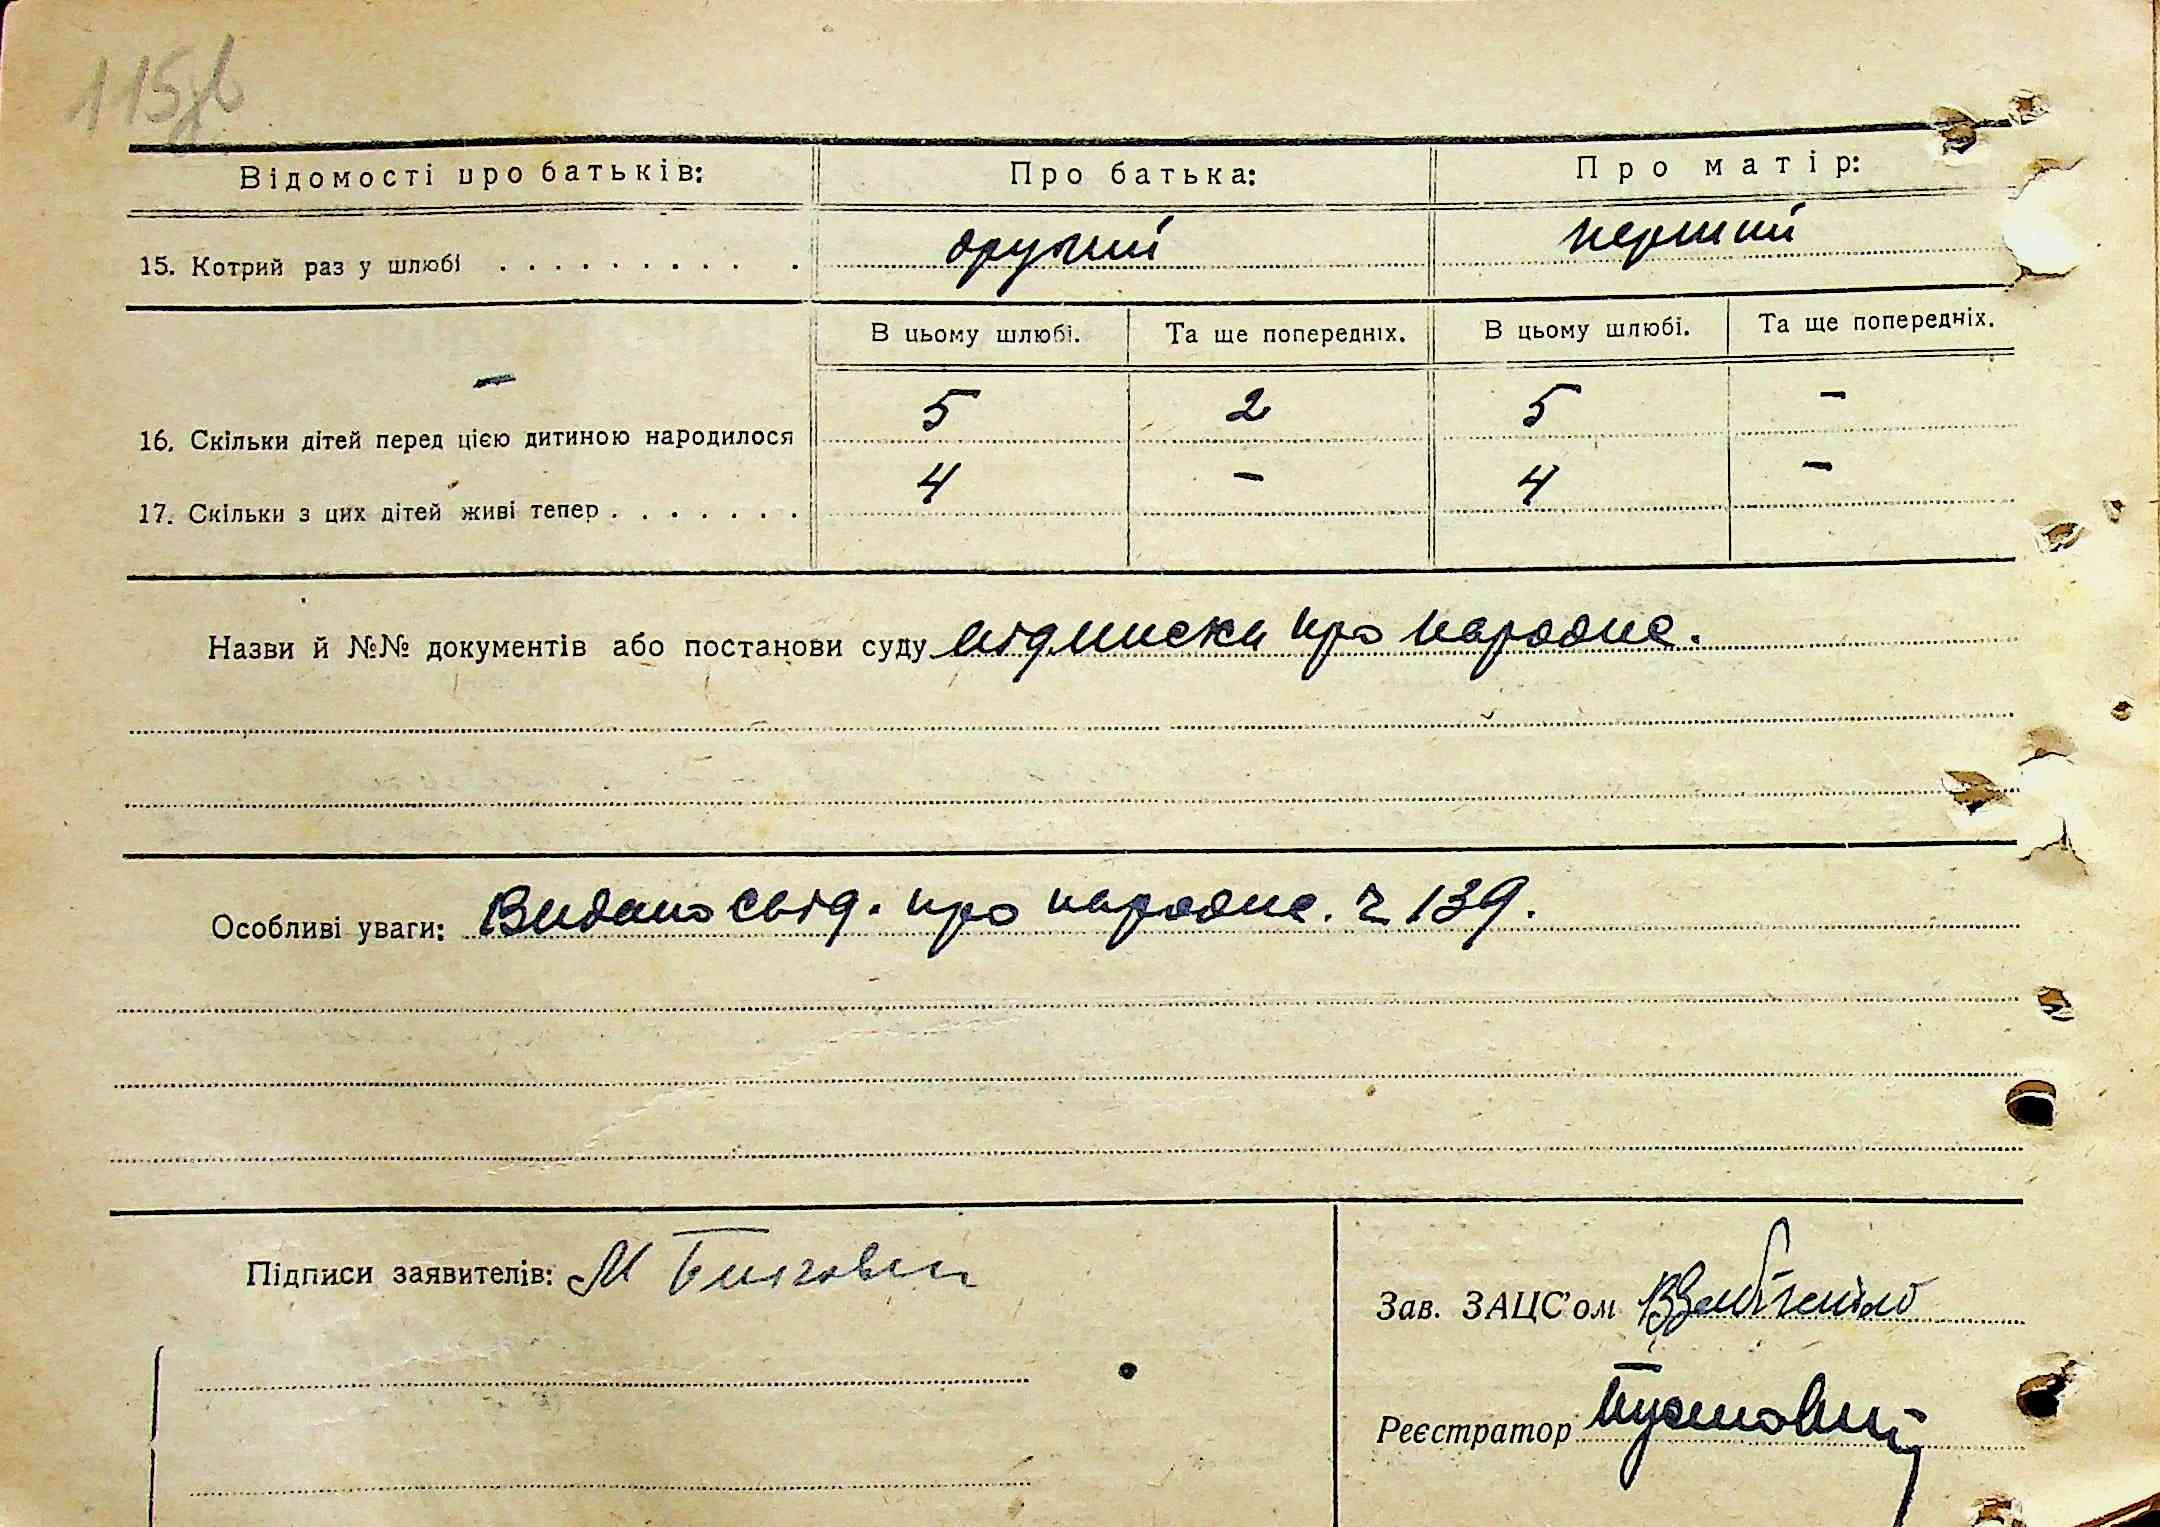 115зв
Відомості про батьків: Про батька: Про матір:
15. Котрий раз у шлюбі . . . . . . . . . . другий перший
В цьому шлюбі. Та ще попередніх. В цьому шлюбі. Та ще попередніх.
–
16. Скільки дітей перед цією дитиною народилося 5 2 5 –
17. Скільки з цих дітей живі тепер . . . . . . . 4 – 4 –
Назви й №№ документів або постанови суду підписка про народже.
Особливі уваги: Видано свід. про народже. ч 139.
Підписи заявителів: М
Зав. ЗАЦС'ом
Реєстратор